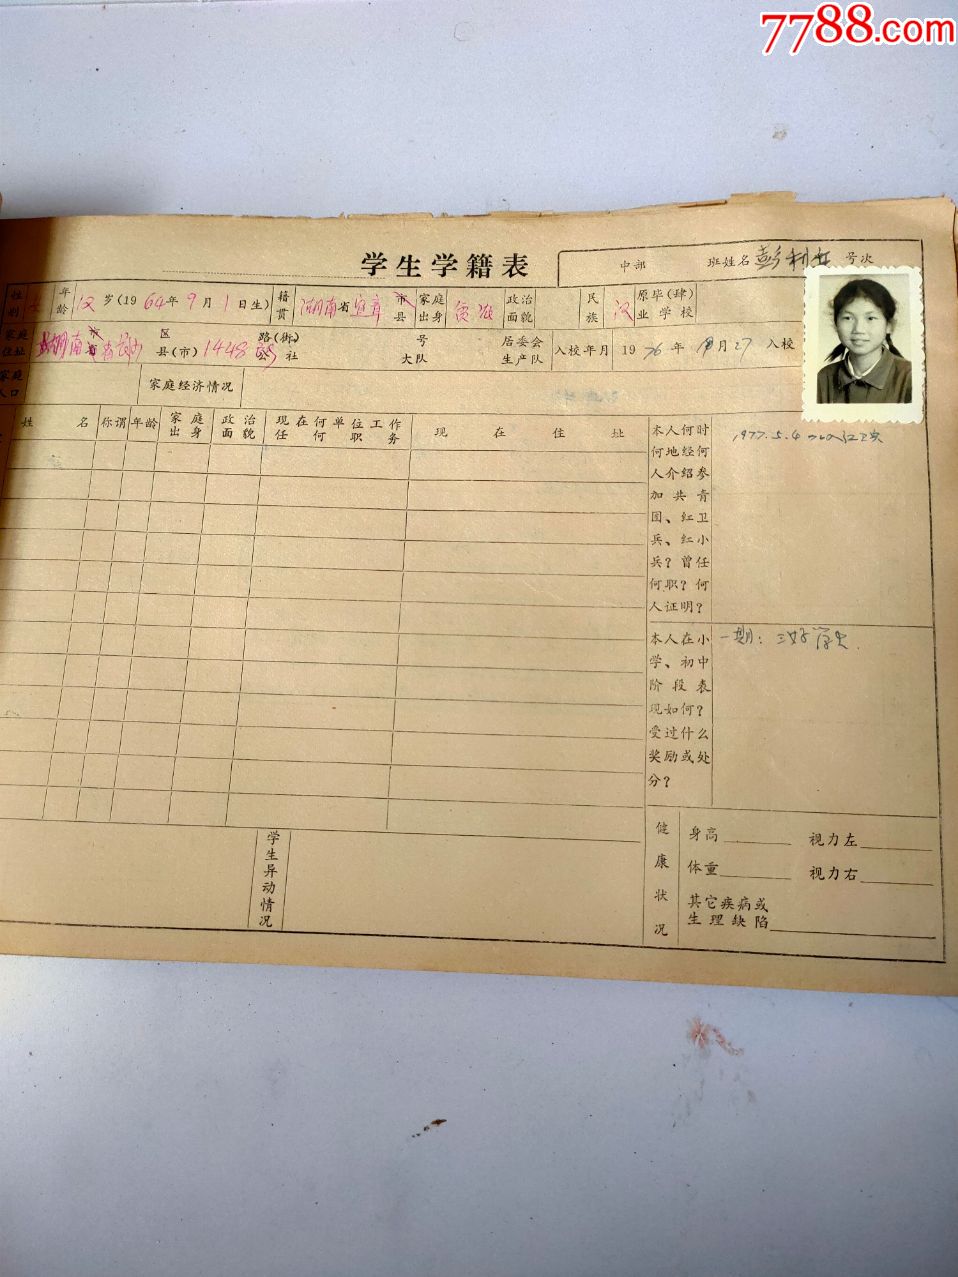 7788.com
学生学籍表
中部 班姓名 彭利 号次
性别 女 年龄 汉 岁(1964年9月1日生) 籍贯 湖南省宜章县 家庭出身 政治面貌 民族 汉 原毕(肄)业学校
家庭住址 湖南省长沙 区县(市) 1448 路(街)公社 号大队 居委会生产队 入校年月 1976年 月27 入校
家庭人口 家庭经济情况
姓 名 称谓 年龄 家庭出身 政治面貌 现在何单位工作任何职务 现在住址
本人何时何地经何人介绍参加共青团、红卫兵、红小兵?曾任何职?何人证明?
1977.5.4
本人在小学、初中阶段表现如何?受过什么奖励或处分?
一期:三好学生.
学生异动情况
健康状况
身高 视力左
体重 视力右
其它疾病或生理缺陷